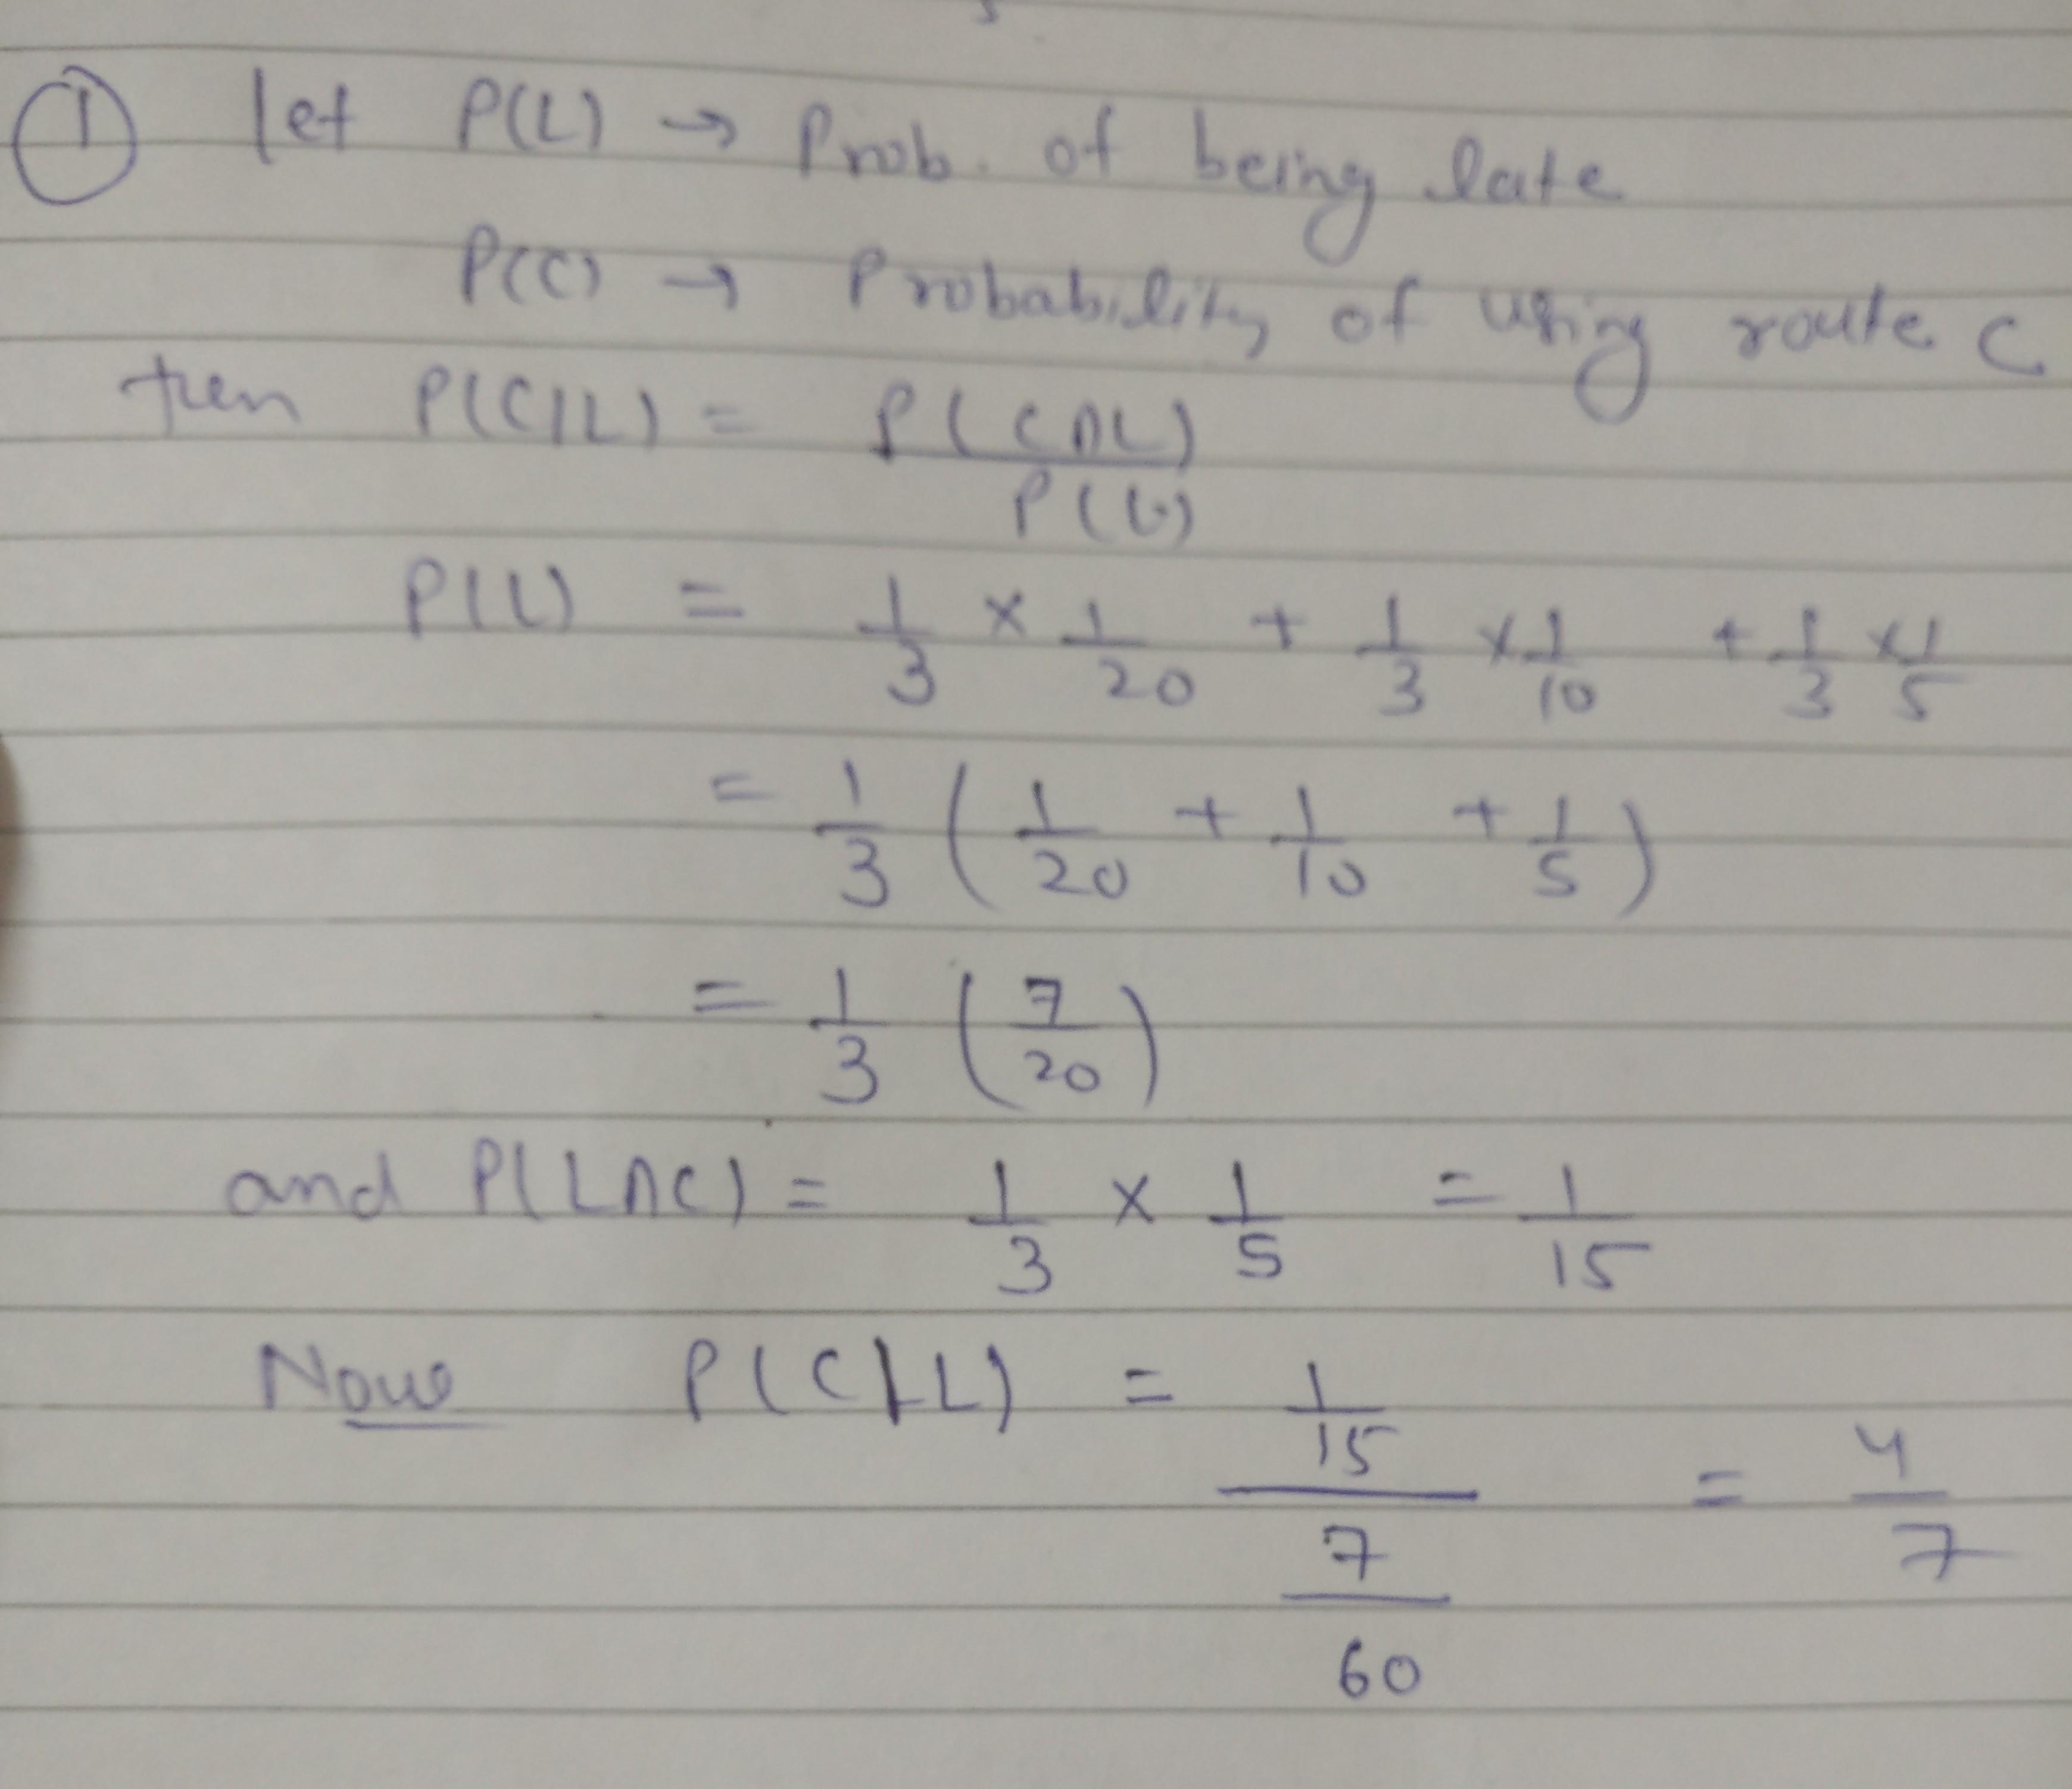 ① let P(L) → Prob. of being late
P(C) → Probability of using route C
then P(C|L) = P(C∩L) / P(L)
P(L) = 1/3 × 1/20 + 1/3 × 1/10 + 1/3 × 1/5
= 1/3 ( 1/20 + 1/10 + 1/5 )
= 1/3 ( 7/20 )
and P(L∩C) = 1/3 × 1/5 = 1/15
Now P(C|L) = (1/15) / (7/60) = 4/7